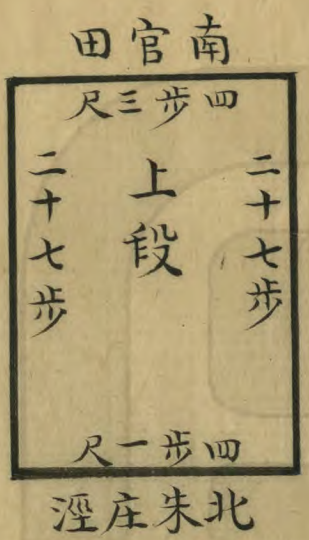 南官田
四步三尺
二十七步
上段
二十七步
四步一尺
北朱庄涇